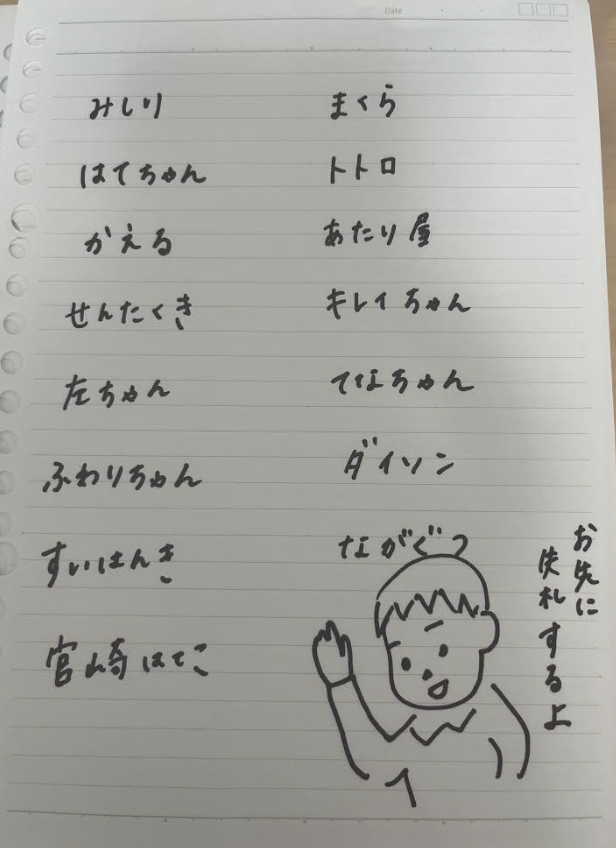 Date
みしり
はてちゃん
かえる
せんたくき
左ちゃん
ふわりちゃん
すいはんき
宮崎はてこ
まくら
トトロ
あたり屋
キレイちゃん
てなちゃん
ダイソン
ながぐつ
お先に
失礼するよ